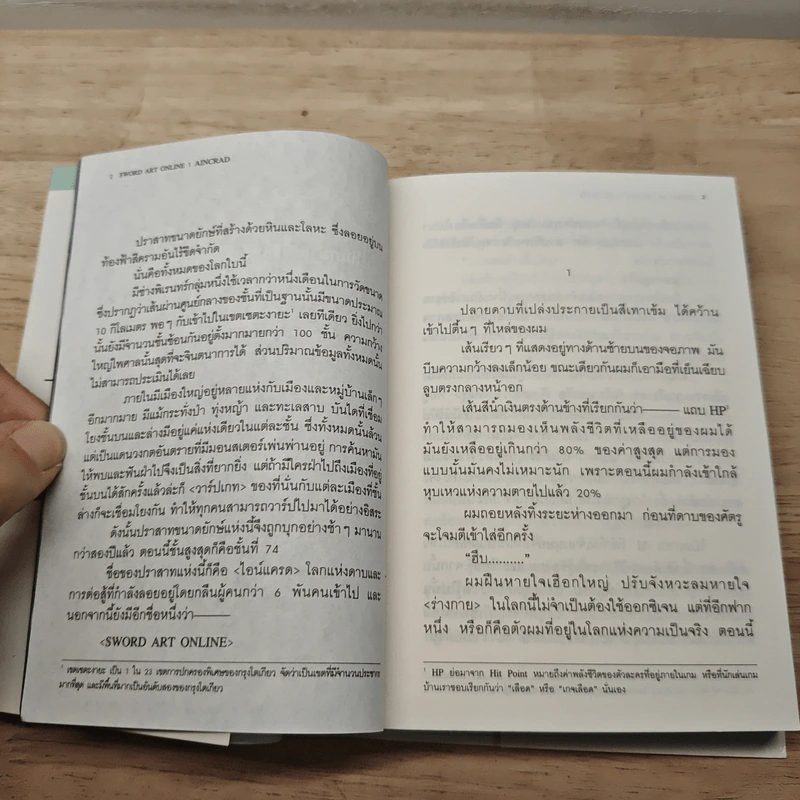 2 SWORD ART ONLINE : AINCRAD
ปราสาทขนาดยักษ์ที่สร้างด้วยหินและโลหะ ซึ่งลอยอยู่บน
ท้องฟ้าสีครามอันไร้ขีดจำกัด
นั่นคือทั้งหมดของโลกใบนี้
มีช่างพิเรนทร์กลุ่มหนึ่งใช้เวลากว่าหนึ่งเดือนในการวัดขนาด
ซึ่งปรากฏว่าเส้นผ่านศูนย์กลางของชั้นที่เป็นฐานนั้นมีขนาดประมาณ
10 กิโลเมตร พอๆ กับเข้าไปในเขตเซตะงายะ¹ เลยทีเดียว ยิ่งไปกว่า
นั้นยังมีจำนวนชั้นซ้อนกันอยู่ตั้งมากมายกว่า 100 ชั้น ความกว้าง
ใหญ่ไพศาลนั้นสุดที่จะจินตนาการได้ ส่วนปริมาณข้อมูลทั้งหมดนั้น
ไม่สามารถประเมินได้เลย
ภายในมีเมืองใหญ่อยู่หลายแห่งกับเมืองและหมู่บ้านเล็กๆ
อีกมากมาย มีแม้กระทั่งป่า ทุ่งหญ้า และทะเลสาบ บันไดที่เชื่อม
โยงชั้นบนและล่างมีอยู่แค่แห่งเดียวในแต่ละชั้น ซึ่งทั้งหมดนั้นล้วน
แต่เป็นแดนวงกตอันตรายที่มีมอนสเตอร์เพ่นพ่านอยู่ การค้นหามัน
ให้พบและฟันฝ่าไปจึงเป็นสิ่งที่ยากยิ่ง แต่ถ้ามีใครฝ่าไปถึงเมืองที่อยู่
ชั้นบนได้สักครั้งแล้วล่ะก็ <วาร์ปเกท> ของที่นั่นกับแต่ละเมืองที่ชั้น
ล่างก็จะเชื่อมโยงกัน ทำให้ทุกคนสามารถวาร์ปไปมาได้อย่างอิสระ
ดังนั้นปราสาทขนาดยักษ์แห่งนี้จึงถูกบุกอย่างช้าๆ มานาน
กว่าสองปีแล้ว ตอนนี้ชั้นสูงสุดก็คือชั้นที่ 74
ชื่อของปราสาทแห่งนี้ก็คือ <ไอน์แครด> โลกแห่งดาบและ
การต่อสู้ที่กำลังลอยอยู่โดยกลืนผู้คนกว่า 6 พันคนเข้าไป และ
นอกจากนี้ยังมีอีกชื่อหนึ่งว่า———
<SWORD ART ONLINE>
¹ เขตเซตะงายะ เป็น 1 ใน 23 เขตการปกครองพิเศษของกรุงโตเกียว จัดว่าเป็นเขตที่มีจำนวนประชากร
มากที่สุด และมีพื้นที่มากเป็นอันดับสองของกรุงโตเกียว
1
ปลายดาบที่เปล่งประกายเป็นสีเทาเข้ม ได้คว้าน
เข้าไปตื้นๆ ที่ไหล่ของผม
เส้นเรียวๆ ที่แสดงอยู่ทางด้านซ้ายบนของจอภาพ มัน
บีบความกว้างลงเล็กน้อย ขณะเดียวกันผมก็เอามือที่เย็นเฉียบ
ลูบตรงกลางหน้าอก
เส้นสีน้ำเงินตรงด้านข้างที่เรียกกันว่า——— แถบ HP¹
ทำให้สามารถมองเห็นพลังชีวิตที่เหลืออยู่ของผมได้
มันยังเหลืออยู่เกินกว่า 80% ของค่าสูงสุด แต่การมอง
แบบนั้นมันคงไม่เหมาะนัก เพราะตอนนี้ผมกำลังเข้าใกล้
หุบเหวแห่งความตายไปแล้ว 20%
ผมถอยหลังทิ้งระยะห่างออกมา ก่อนที่ดาบของศัตรู
จะโจมตีเข้าใส่อีกครั้ง
"ฮึบ.........."
ผมฝืนหายใจเฮือกใหญ่ ปรับจังหวะลมหายใจ
<ร่างกาย> ในโลกนี้ไม่จำเป็นต้องใช้ออกซิเจน แต่ที่อีกฟาก
หนึ่ง หรือก็คือตัวผมที่อยู่ในโลกแห่งความเป็นจริง ตอนนี้
¹ HP ย่อมาจาก Hit Point หมายถึงค่าพลังชีวิตของตัวละครที่อยู่ภายในเกม หรือที่นักเล่นเกม
บ้านเราชอบเรียกกันว่า "เลือด" หรือ "เกจเลือด" นั่นเอง